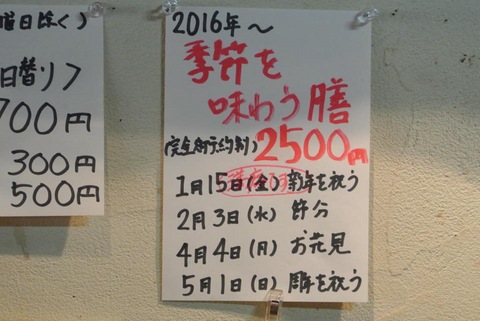 曜日除く)
日替リフ
700円
300円
500円
2016年~
季節を
味わう膳
(完全予約制) 2500円
1月15日(金) 新年を祝う
2月3日(水) 節分
4月4日(月) お花見
5月1日(日) 周年を祝う